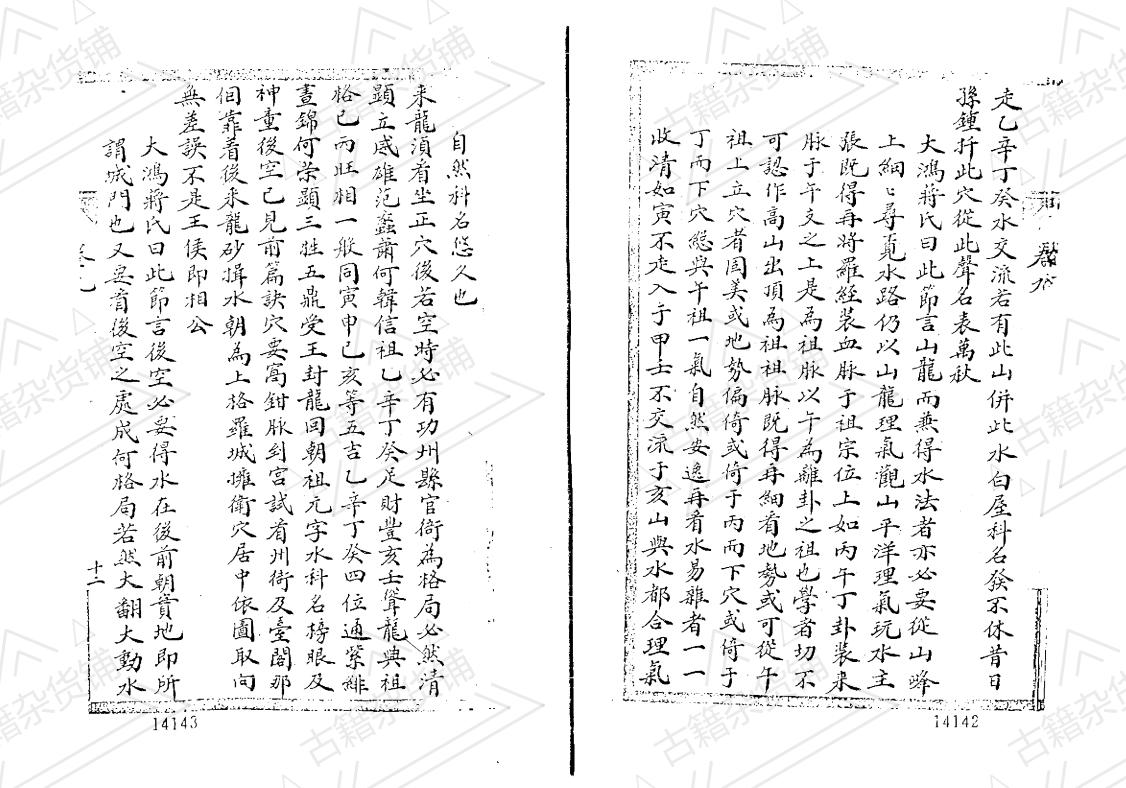 走乙辛丁癸水交流若有此山併此水白屋科名發不休昔日
孫鍾扦此穴從此聲名表萬秋
大鴻蔣氏曰此節言山龍而兼得水法者亦必要從山峰
上細〻尋覓水路仍以山龍理氣觀山平洋理氣玩水主
張既得再將羅經裝血脉于祖宗位上如丙午丁卦裝来
脉于午支之上是為祖脉以午為離卦之祖也學者切不
可認作高山出頂為祖祖脉既得再細看地勢或可從午
祖上立穴者固美或地勢偏倚或倚于丙而下穴或倚于
丁而下穴總與午祖一氣自然安逸再看水易雜者一一
收清如寅不走入于甲士不交流于亥山與水都合理氣
14142
自然科名悠久也
来龍湏看坐正穴後若空時必有功州縣官衙為格局必然清
顯立威雄范蠡蕭何韓信祖乙辛丁癸足財豐亥壬聳龍興祖
格己丙旺相一般同寅申巳亥等五吉乙辛丁癸四位通紫緋
晝錦何榮顯三牲五鼎受王封龍回朝祖元字水科名榜眼及
神童後空已見前篇訣穴要窩鉗脉到宫試看州衙及臺閣那
個靠着後来龍砂揖水朝為上格羅城擁衛穴居中依圖取向
無差誤不是王侯即相公
大鴻蔣氏曰此節言後空必要得水在後前朝實地即所
謂城門也又要看後空之處成何格局若然大翻大動水
十二
14143
古籍杂货铺